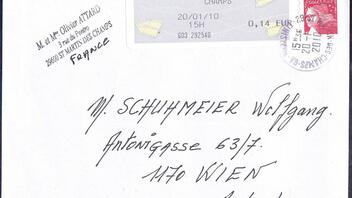 M. et Mme Olivier ATTARD
3 rue du Poulfru
29600 ST MARTIN DES CHAMPS
FRANCE
CHAMPS
20/01/10
15H
0,14 EUR
603 292540
15H
20-1
2010
M. SCHUHMEIER Wolfgang.
Antonigasse 63/7.
1170 WIEN